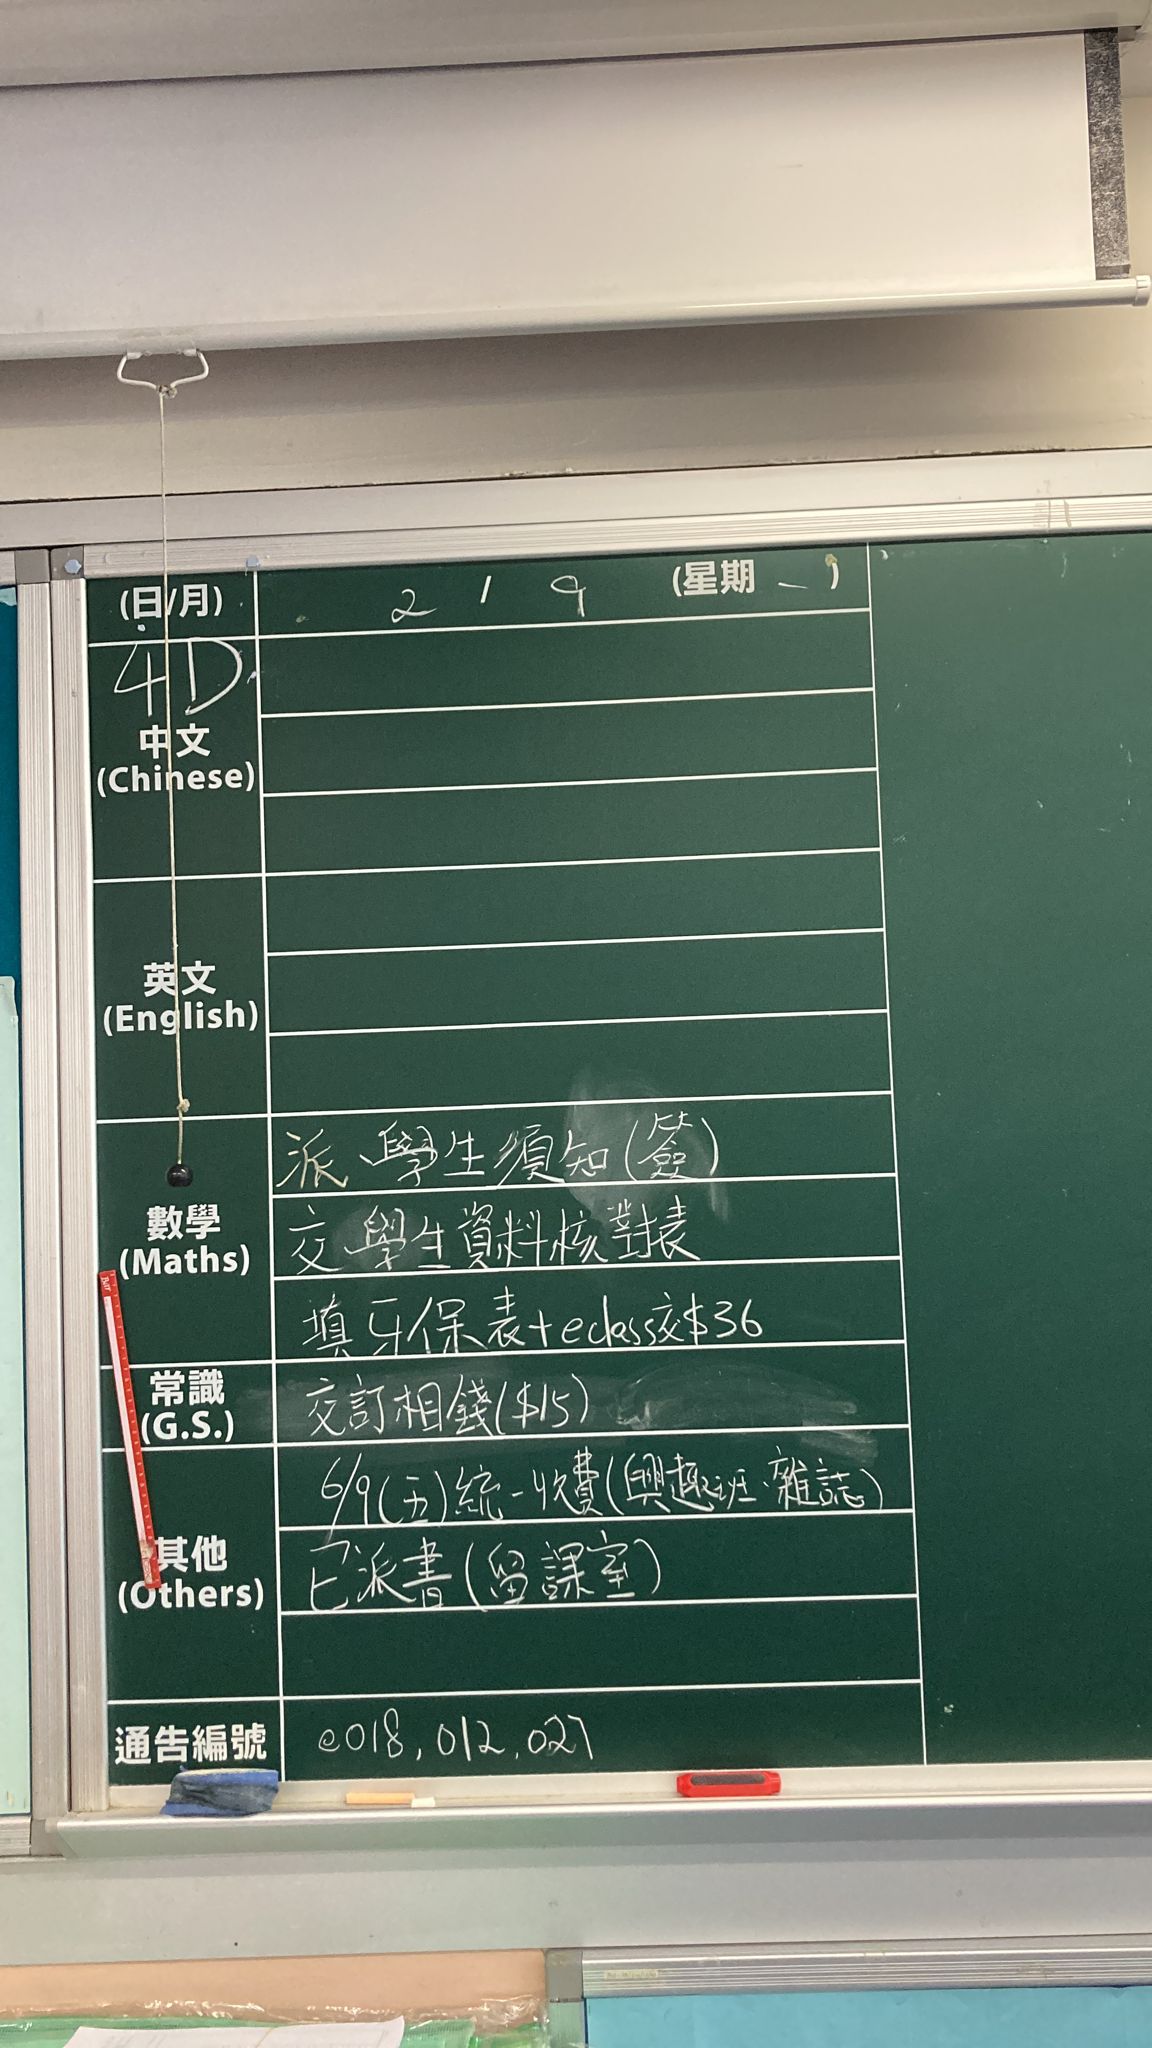 (日/月) 2 / 9 (星期一)
4D
中文
(Chinese)
英文
(English)
派學生須知(簽)
數學
(Maths)
交學生資料核對表
填牙保表+eclass交$36
常識
(G.S.)
交訂相錢($15)
6/9(五)統一收費(興趣班、雜誌)
其他
(Others)
已派書(留課室)
通告編號
e018, 012, 027